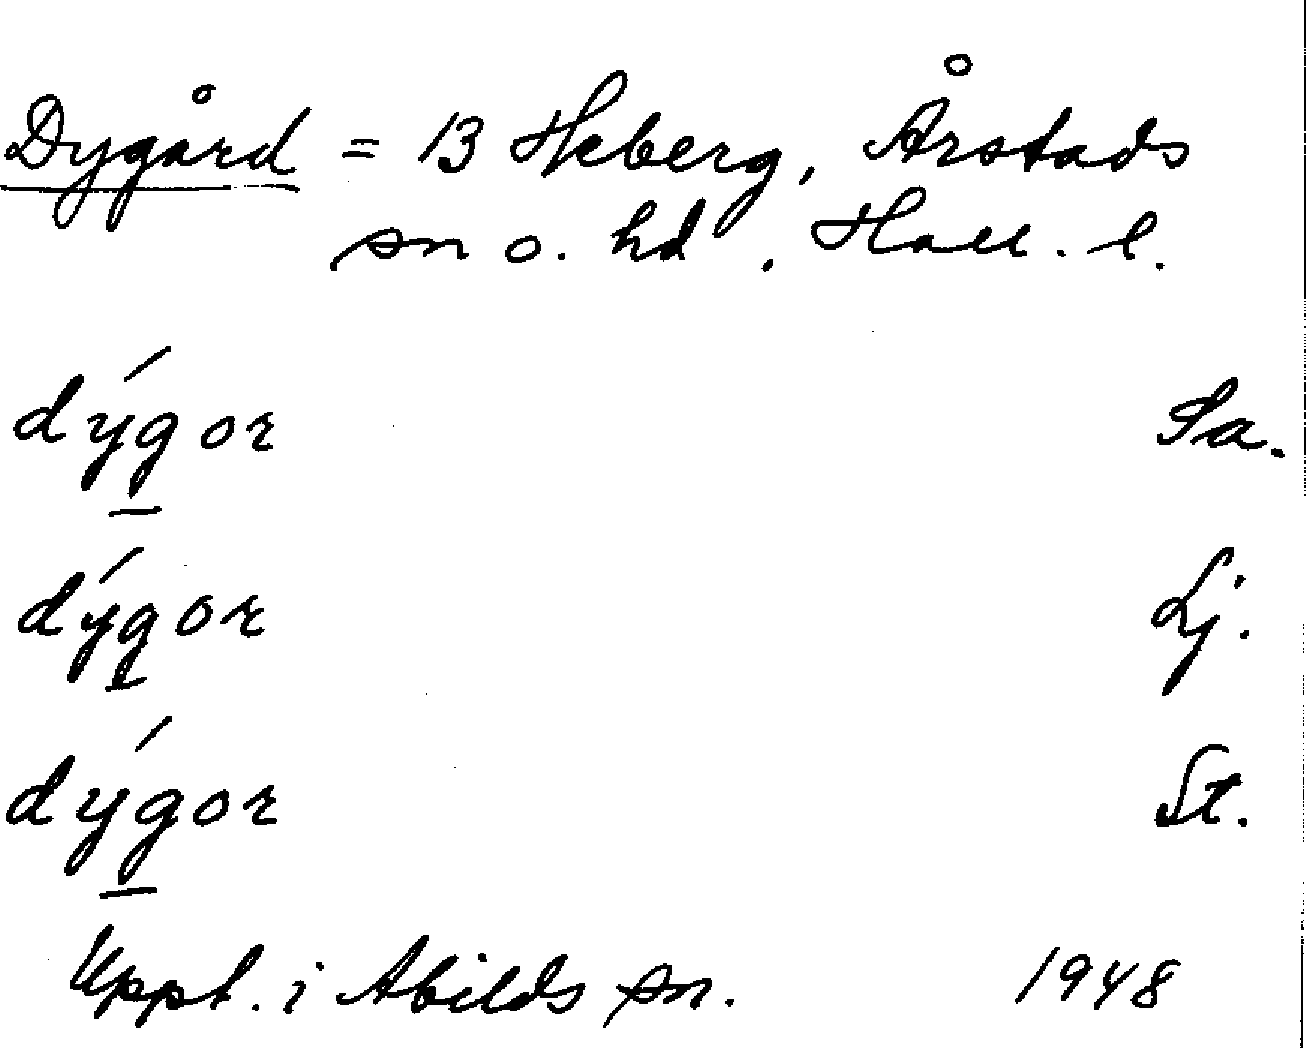 Dygård = 13 Heberg, Årstads
sn o. hd, Hall. l.
dýgor Sa.
dýgor Lj.
dýgor St.
Uppt. i Abilds sn. 1948